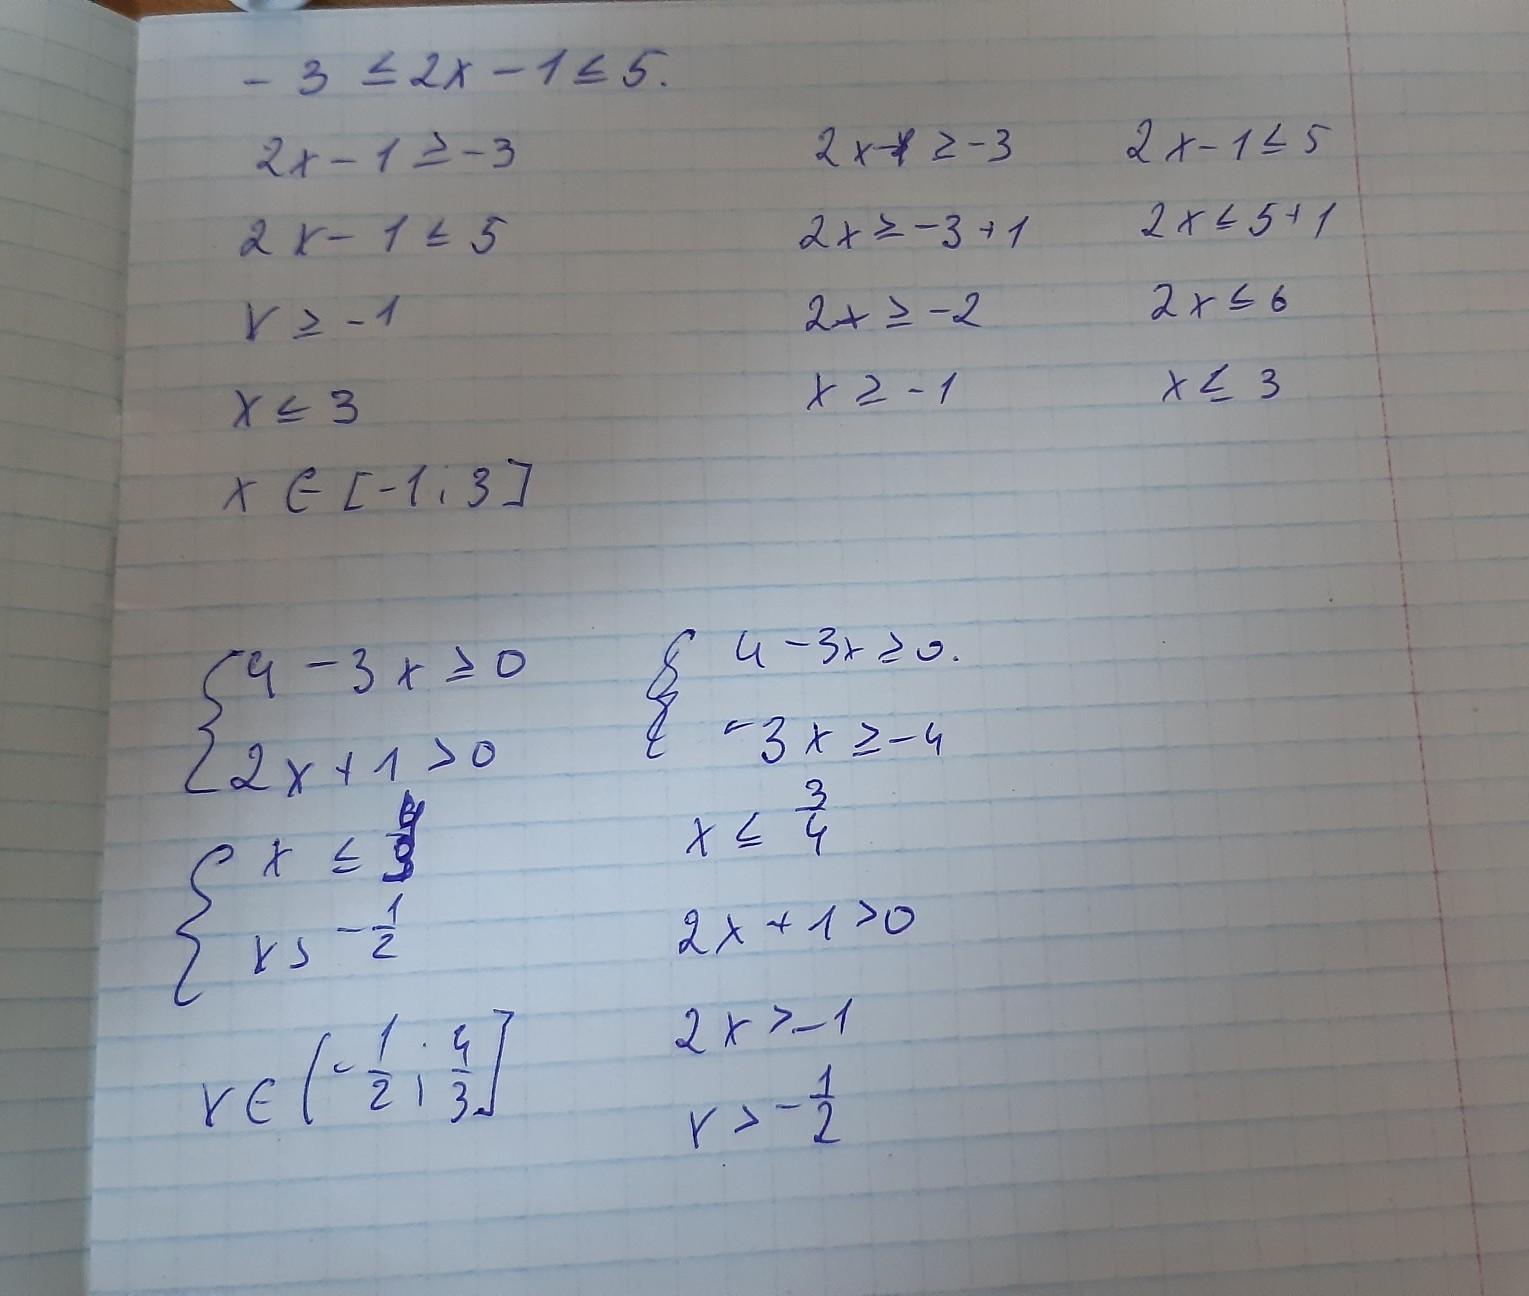 - 3 ≤ 2x - 1 ≤ 5.
2x - 1 ≥ -3
2x - 1 ≤ 5
x ≥ -1
x ≤ 3
x ∈ [-1; 3]
2x-1 ≥ -3
2x ≥ -3+1
2x ≥ -2
x ≥ -1
2x-1 ≤ 5
2x ≤ 5+1
2x ≤ 6
x ≤ 3
{ 4 - 3x ≥ 0
2x + 1 > 0
{ x ≤
x > - 1/2
x ∈ (- 1/2; 4/3]
{ 4 - 3x ≥ 0.
-3x ≥ -4
x ≤ 3/4
2x + 1 > 0
2x > -1
x > - 1/2